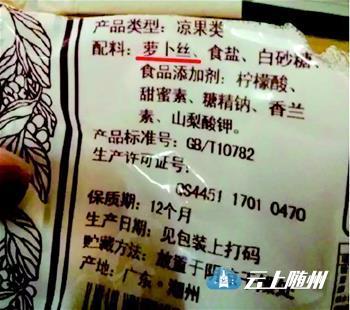 产品类型：凉果类
配料：萝卜丝、食盐、白砂糖、
食品添加剂：柠檬酸、
甜蜜素、糖精钠、香兰
素、山梨酸钾。
产品标准号：GB/T10782
生产许可证号：
CS4451 1701 0470
保质期：12个月
生产日期：见包装上打码
贮藏方法：放置于阴
产地：广东·潮州
云上随州